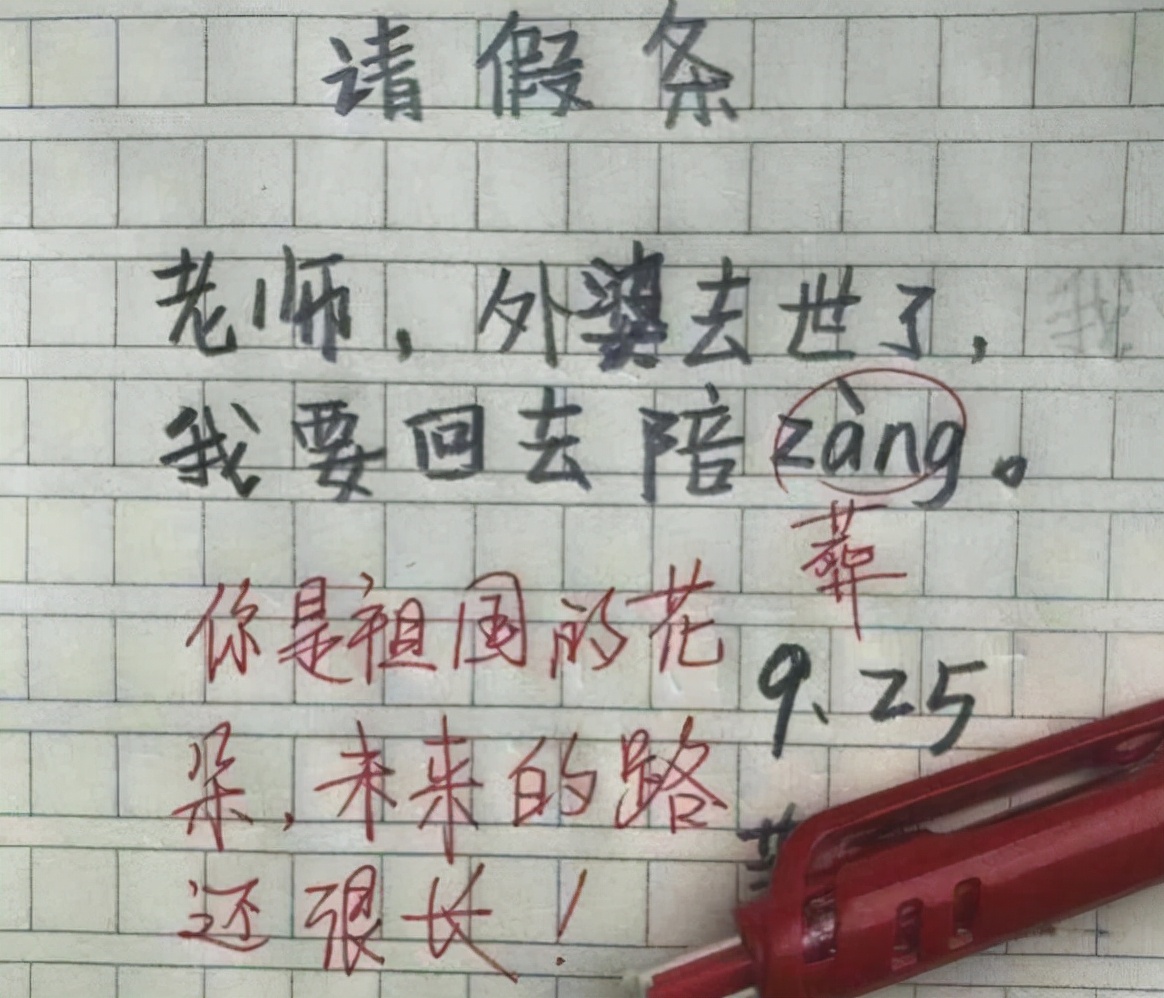 请假条
老师，外婆去世了，
我要回去陪zàng。
葬
你是祖国的花
朵，未来的路
还很长！
9.25